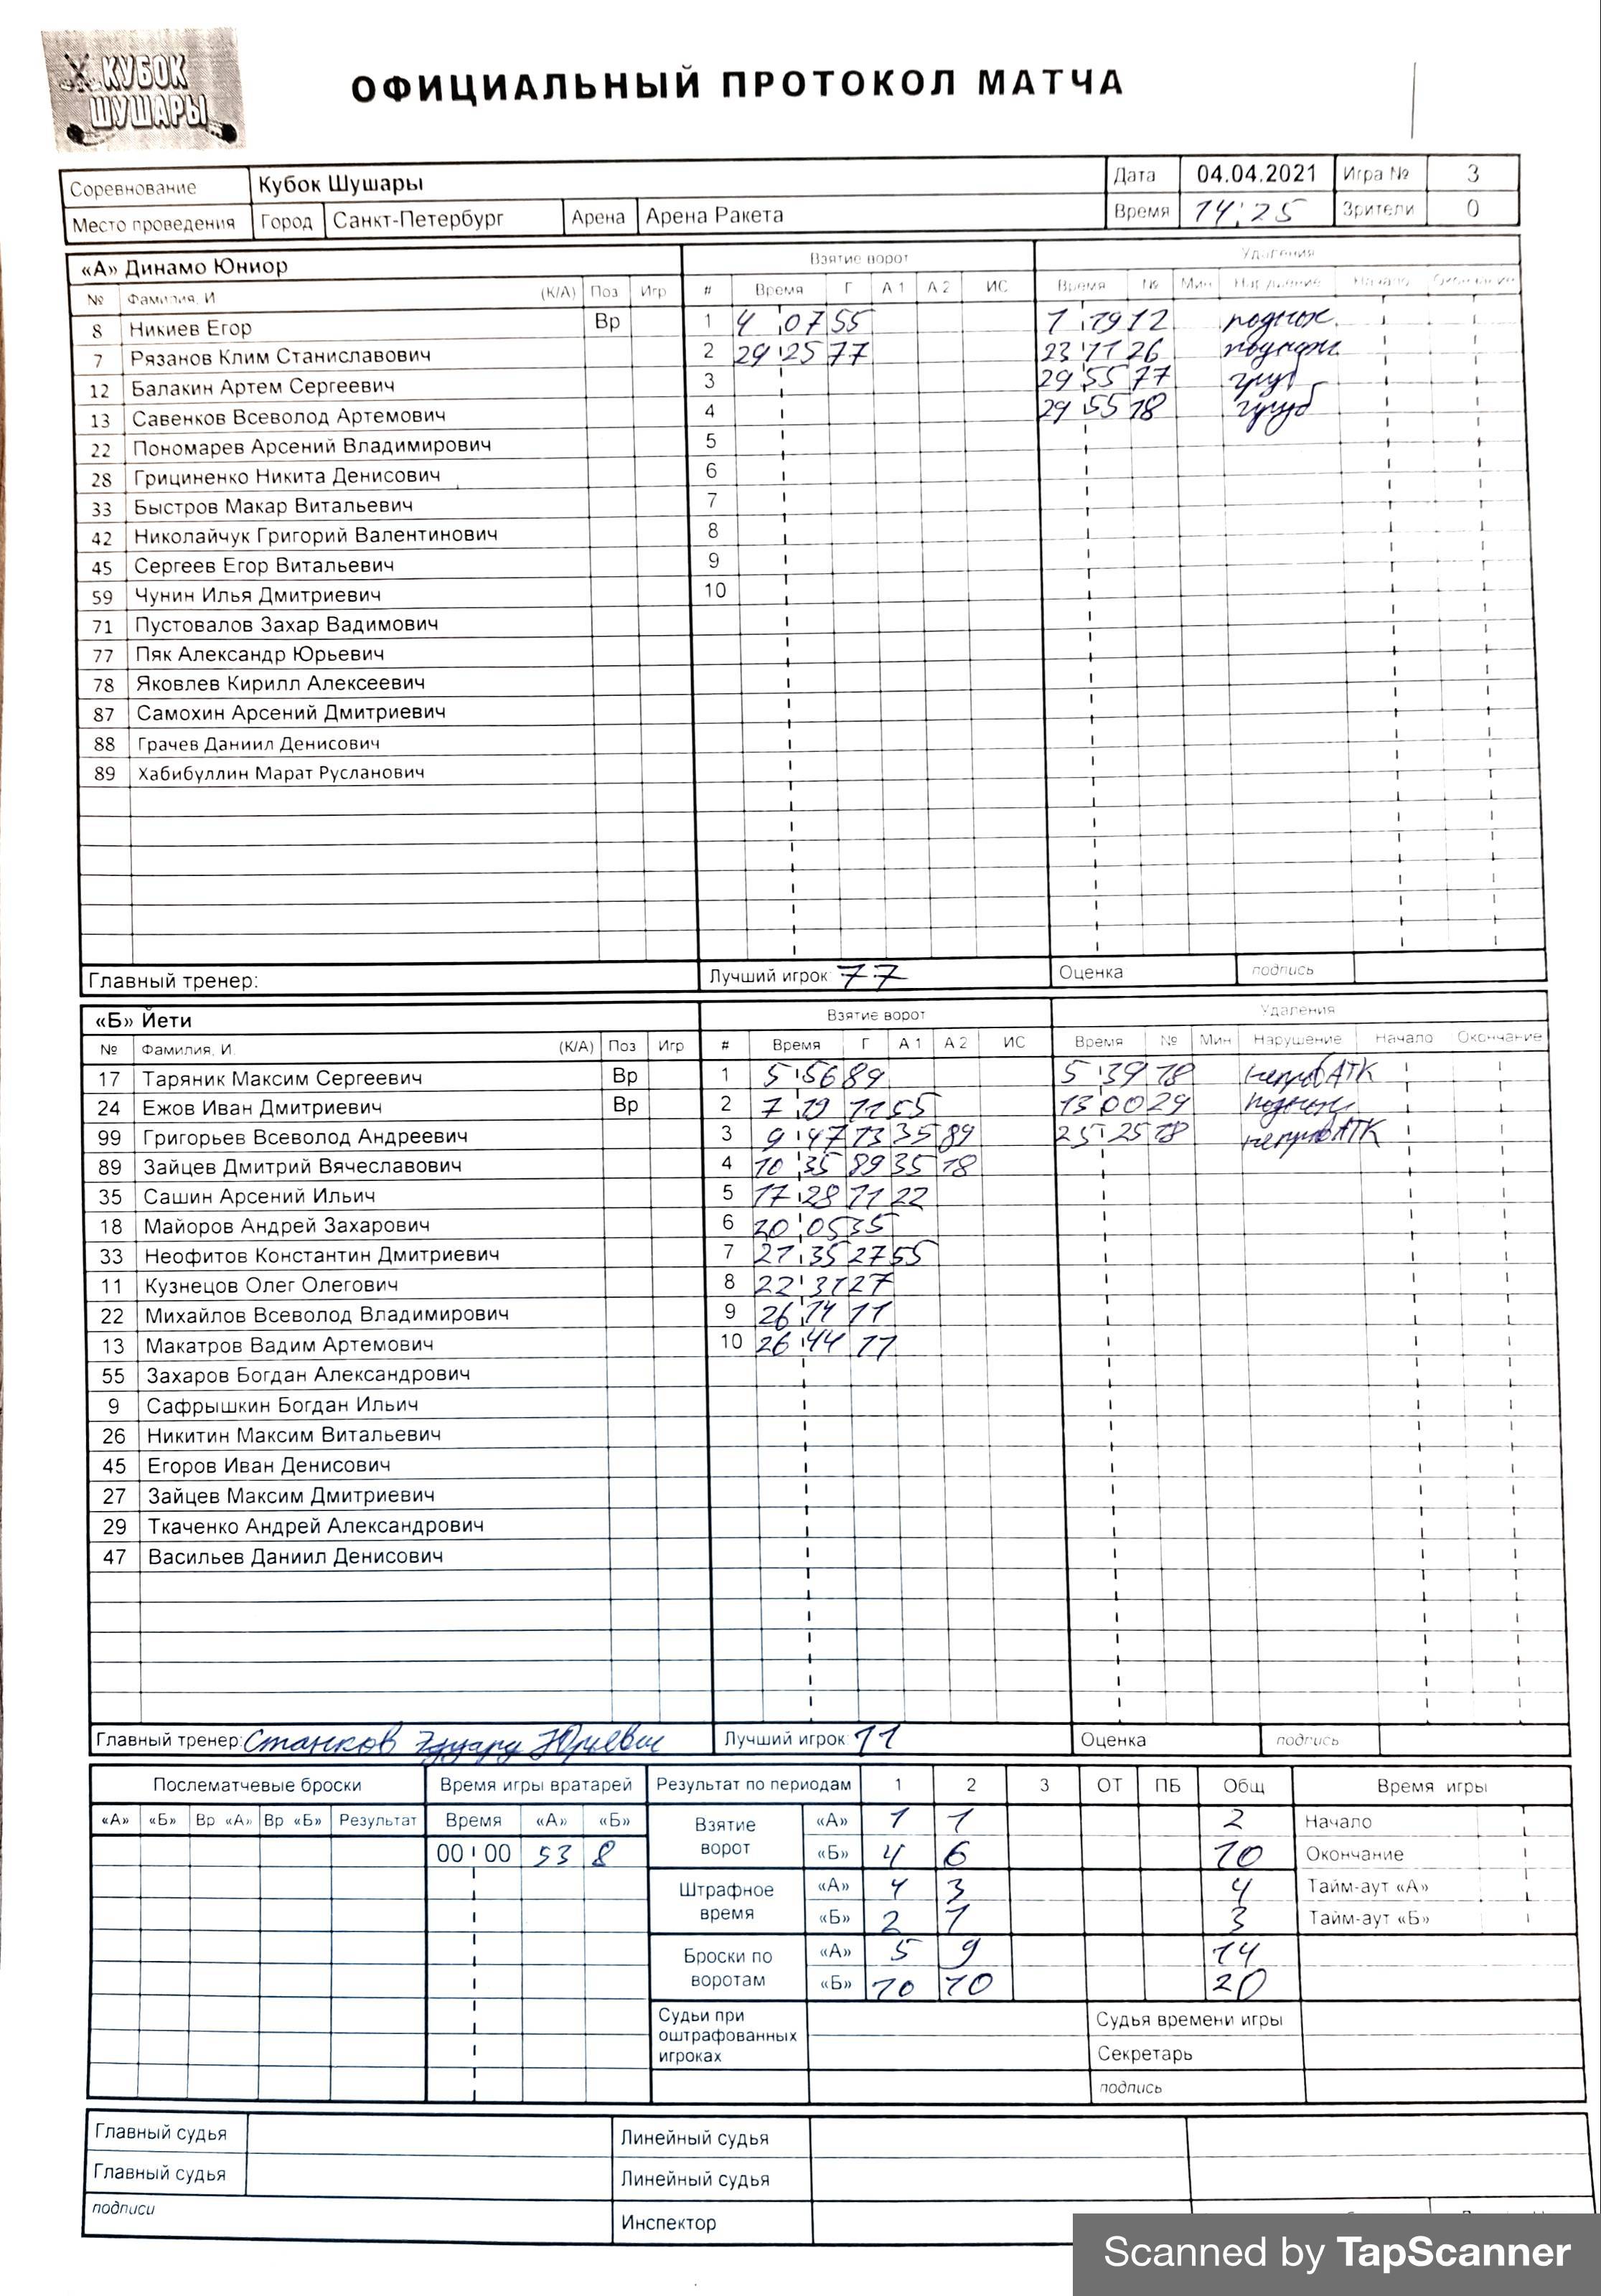 КУБОК
ШУШАРЫ
ОФИЦИАЛЬНЫЙ ПРОТОКОЛ МАТЧА
Соревнование Кубок Шушары Дата 04.04.2021 Игра № 3
Место проведения Город Санкт-Петербург Арена Арена Ракета Время 14:25 Зрители 0
«А» Динамо Юниор Взятие ворот Удаления
№ Фамилия, И (К/А) Поз Игр # Время Г А 1 А 2 ИС Время № Мин Нарушение Начало Окончание
8 Никиев Егор Вр 1 4 07 55 1 19 12 поднож.
7 Рязанов Клим Станиславович 2 29 25 77 23 11 26
12 Балакин Артем Сергеевич 3 29 55 77 груб
13 Савенков Всеволод Артемович 4 29 55 18 груб
22 Пономарев Арсений Владимирович 5
28 Грициненко Никита Денисович 6
33 Быстров Макар Витальевич 7
42 Николайчук Григорий Валентинович 8
45 Сергеев Егор Витальевич 9
59 Чунин Илья Дмитриевич 10
71 Пустовалов Захар Вадимович
77 Пяк Александр Юрьевич
78 Яковлев Кирилл Алексеевич
87 Самохин Арсений Дмитриевич
88 Грачев Даниил Денисович
89 Хабибуллин Марат Русланович
Главный тренер: Лучший игрок 77 Оценка подпись
«Б» Йети Взятие ворот Удаления
№ Фамилия, И. (К/А) Поз Игр # Время Г А 1 А 2 ИС Время № Мин Нарушение Начало Окончание
17 Таряник Максим Сергеевич Вр 1 5 56 89 5 39 18 неправ АТК
24 Ежов Иван Дмитриевич Вр 2 7 19 11 55 13 00 29 поднож
99 Григорьев Всеволод Андреевич 3 9 47 13 35 89 25 25 18 неправ АТК
89 Зайцев Дмитрий Вячеславович 4 10 35 89 35 18
35 Сашин Арсений Ильич 5 17 28 11 22
18 Майоров Андрей Захарович 6 20 05 35
33 Неофитов Константин Дмитриевич 7 21 35 27 55
11 Кузнецов Олег Олегович 8 22 31 27
22 Михайлов Всеволод Владимирович 9 26 14 11
13 Макатров Вадим Артемович 10 26 44 11
55 Захаров Богдан Александрович
9 Сафрышкин Богдан Ильич
26 Никитин Максим Витальевич
45 Егоров Иван Денисович
27 Зайцев Максим Дмитриевич
29 Ткаченко Андрей Александрович
47 Васильев Даниил Денисович
Главный тренер: Станков Эдуард Юрьевич Лучший игрок: 11 Оценка подпись
Послематчевые броски Время игры вратарей Результат по периодам 1 2 3 ОТ ПБ Общ Время игры
«А» «Б» Вр «А» Вр «Б» Результат Время «А» «Б» Взятие ворот «А» 1 1 2 Начало
00 00 53 8 «Б» 4 6 10 Окончание
Штрафное время «А» 4 3 4 Тайм-аут «А»
«Б» 2 1 3 Тайм-аут «Б»
Броски по воротам «А» 5 9 14
«Б» 10 10 20
Судьи при оштрафованных игроках Судья времени игры
Секретарь
подпись
Главный судья Линейный судья
Главный судья Линейный судья
подписи
Инспектор
Scanned by TapScanner